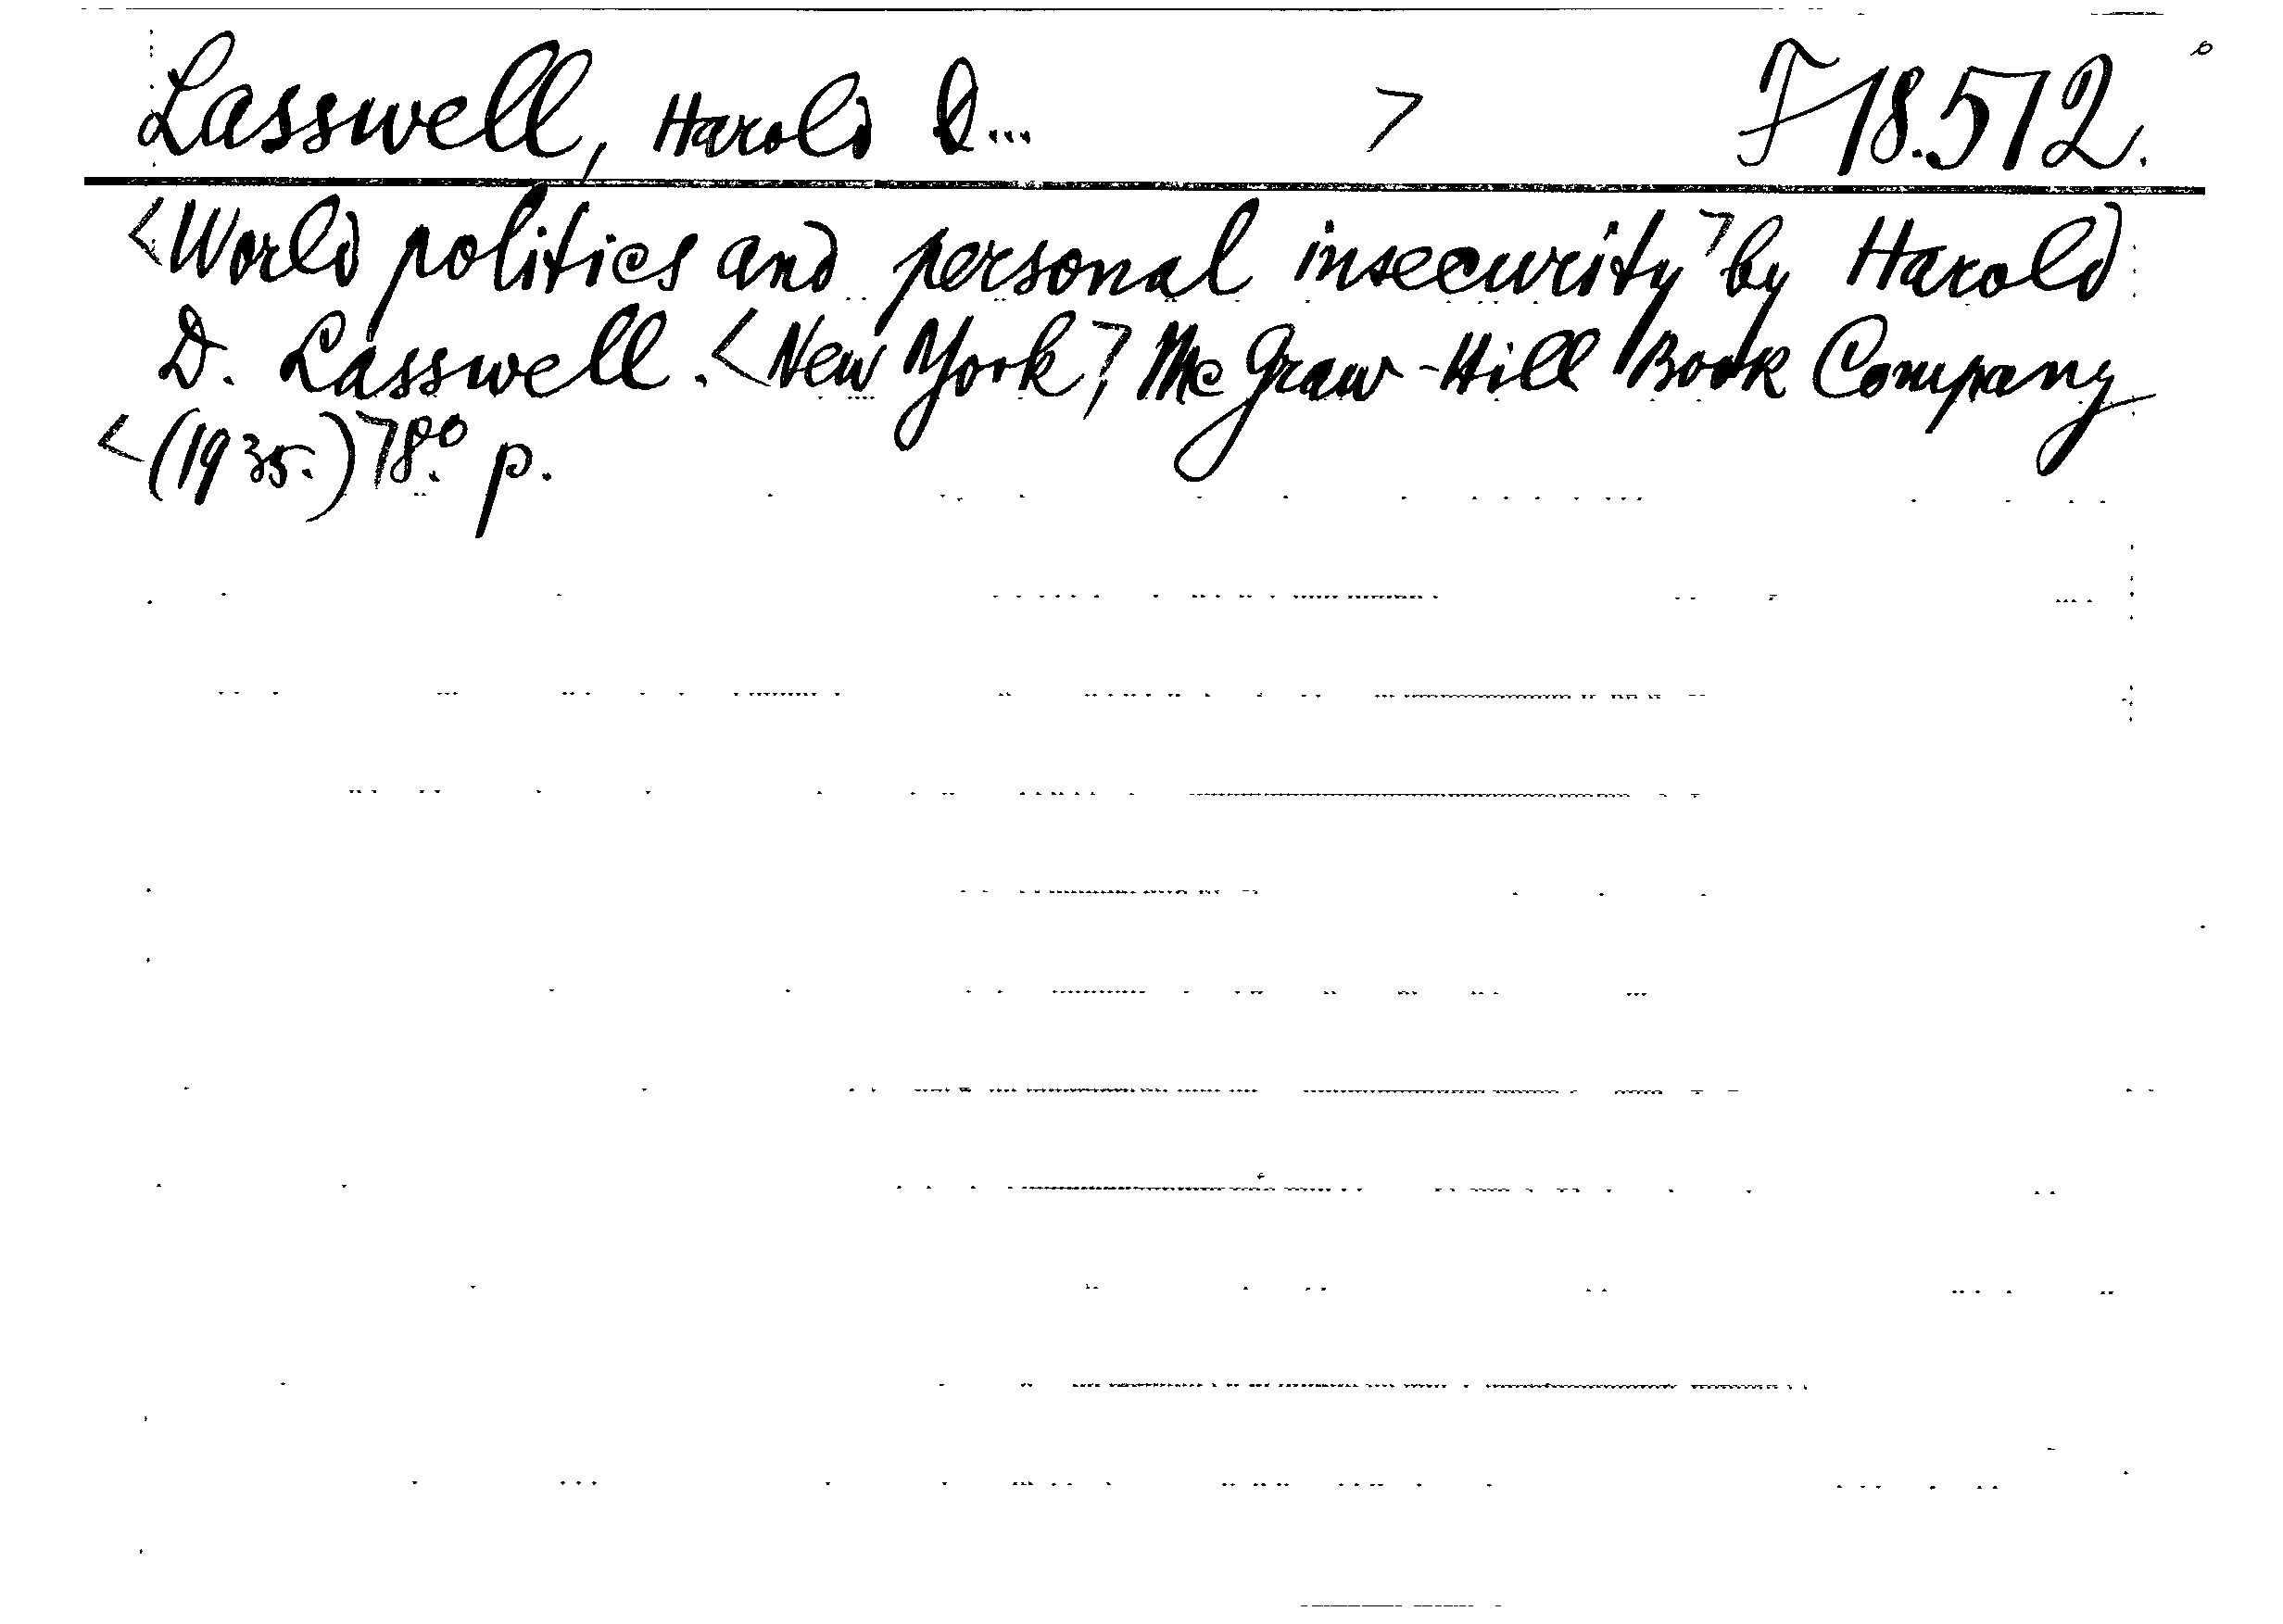 Lasswell, Harold D... > F 18.572.
<World politics and personal insecurity> by Harold
D. Lasswell. <New York,> Mc Graw-Hill Book Company
<(1935.)> 8.° p.